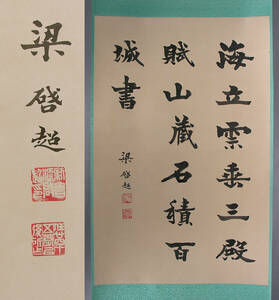 海立雲垂三殿
賦山藏石積百
城書
梁啓超
梁啓超